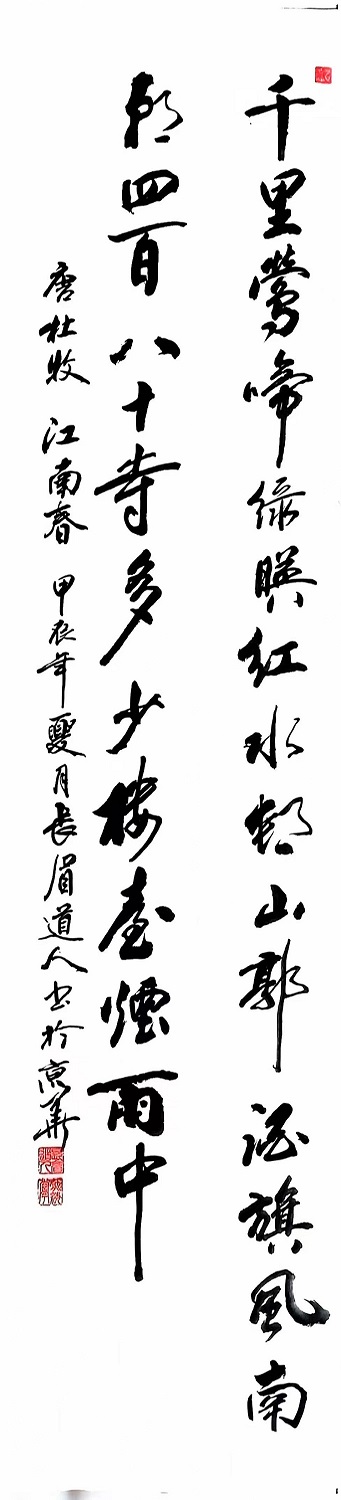 千里莺啼綠暎红水邨山郭酒旗風南
朝四百八十寺多少楼臺煙雨中
唐杜牧江南春甲辰年夏月长眉道人书於京華